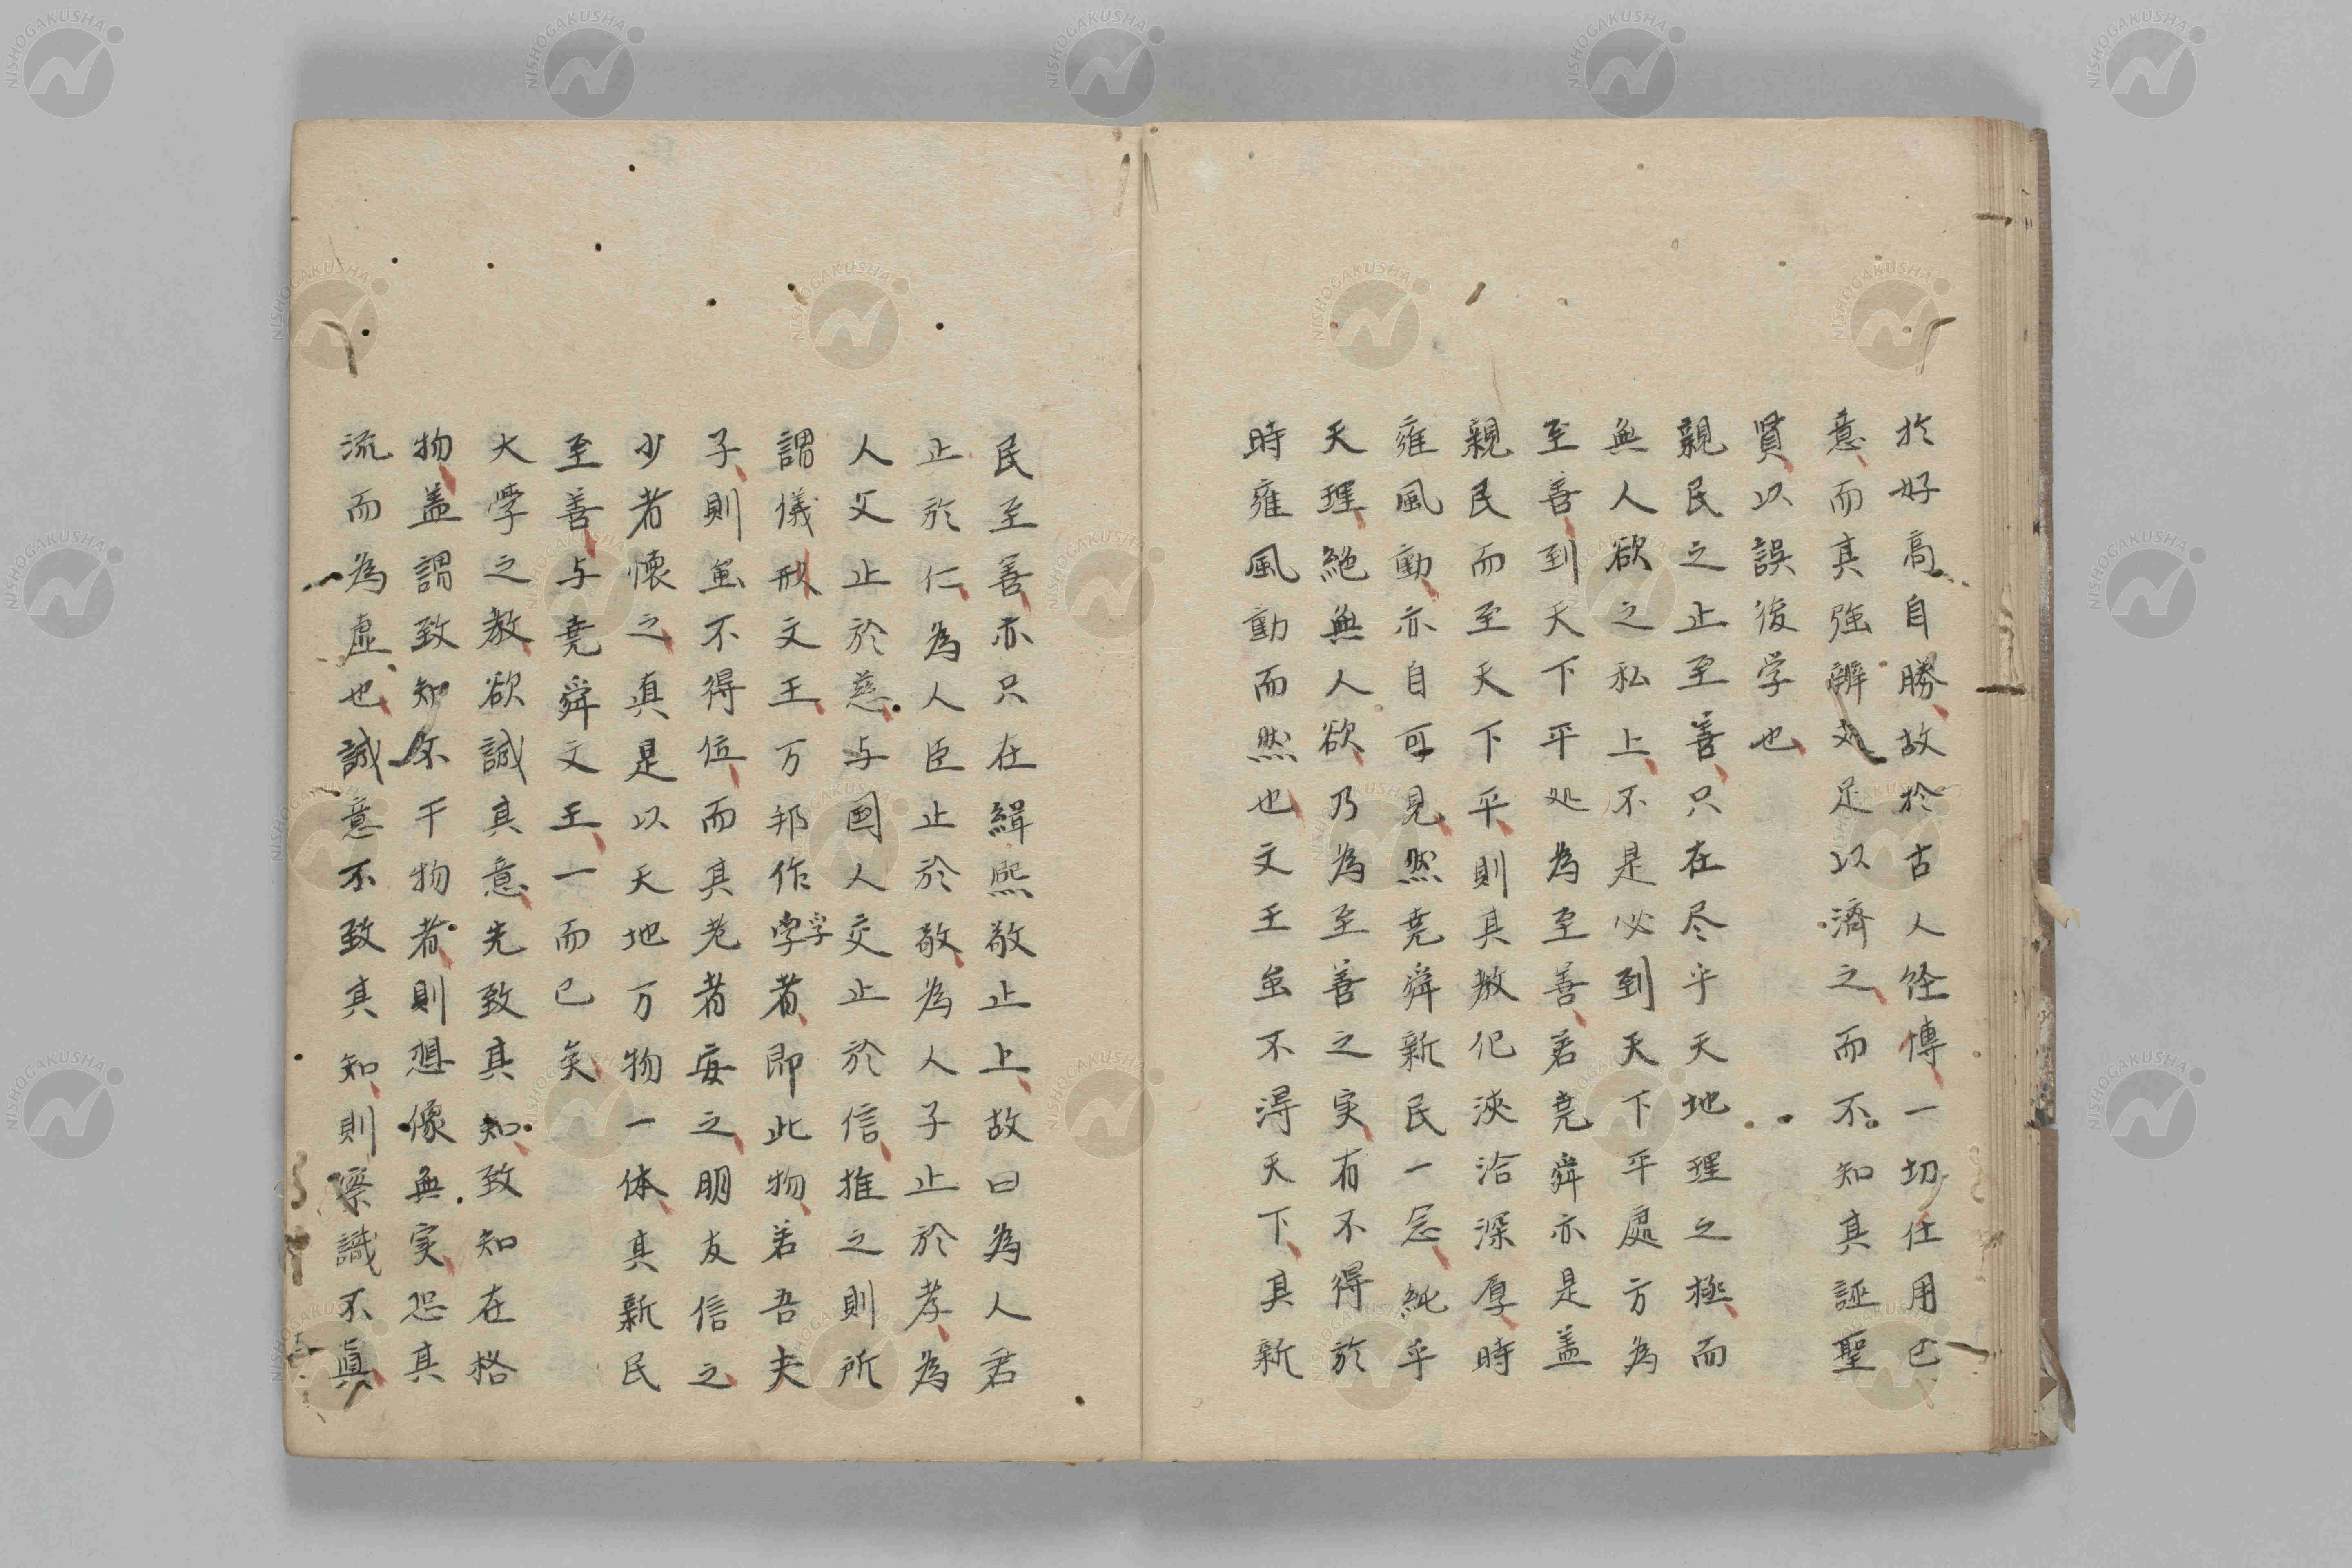 於好高自勝故於古人経傳一切仕用已
意而其強辨文足以濟之而不知其誣聖
賢以誤後学也
親民之止至善只在尽乎天地理之極而
無人欲之私上不是必到天下平處方為
至善到天下平処為至善若尭舜亦是盖
親民而至天下平則其教化浹洽深厚時
雍風動亦自可見然尭舜新民一念純乎
天理絶無人欲乃為至善之実有不得於
時雍風動而然也文王虽不淂天下其新
民至善亦只在緝熙敬止上故曰為人君
止於仁為人臣止於敬為人子止於孝為
人父止於慈与国人交止於信推之則所
謂儀刑文王万邦作孚者即此物若吾夫
子則虽不得位而其老者安之朋友信之
少者懐之真是以天地万物一体其新民
至善与尭舜文王一而已矣
大学之教欲誠其意先致其知致知在格
物盖謂致知不干物者則想像無実恐其
流而為虚也誠意不致其知則察識不真
NISHOGAKUSHA